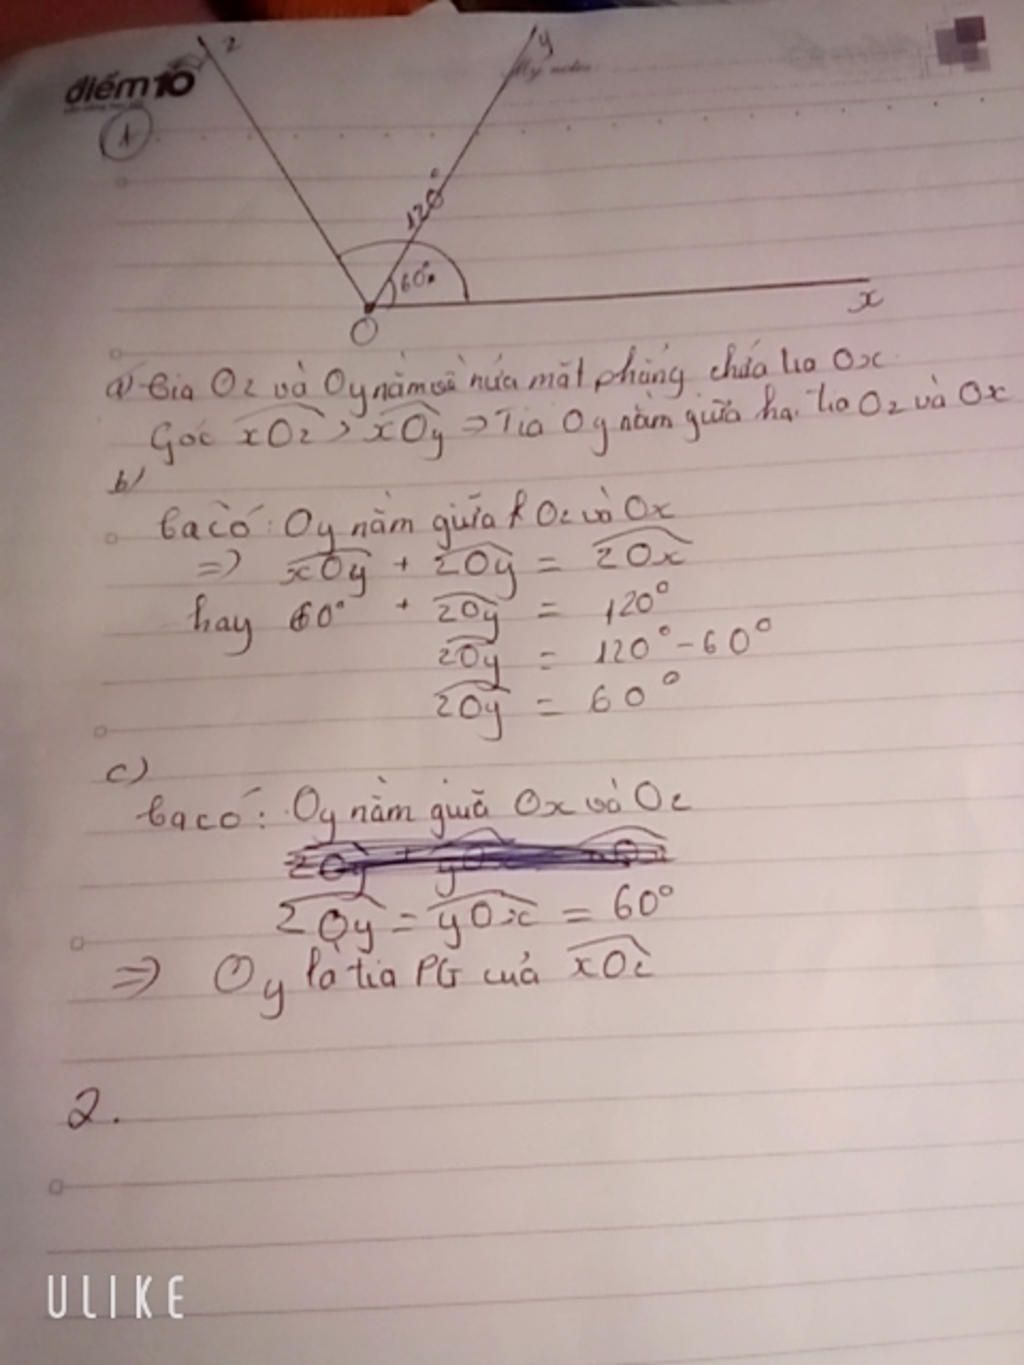 z
y
điểm 10
My notes
1
120°
60°
x
O
a) Tia Oz và Oy nằm nửa mặt phẳng chứa tia Ox
Góc xOz > xOy => Tia Oy nằm giữa hai tia Oz và Ox
b)
Ta có: Oy nằm giữa Oz và Ox
=> xOy + zOy = zOx
hay 60° + zOy = 120°
zOy = 120° - 60°
zOy = 60°
c)
Ta có: Oy nằm giữa Ox và Oz
zOy = yOx = 60°
=> Oy là tia PG của xOz
2.
ULIKE